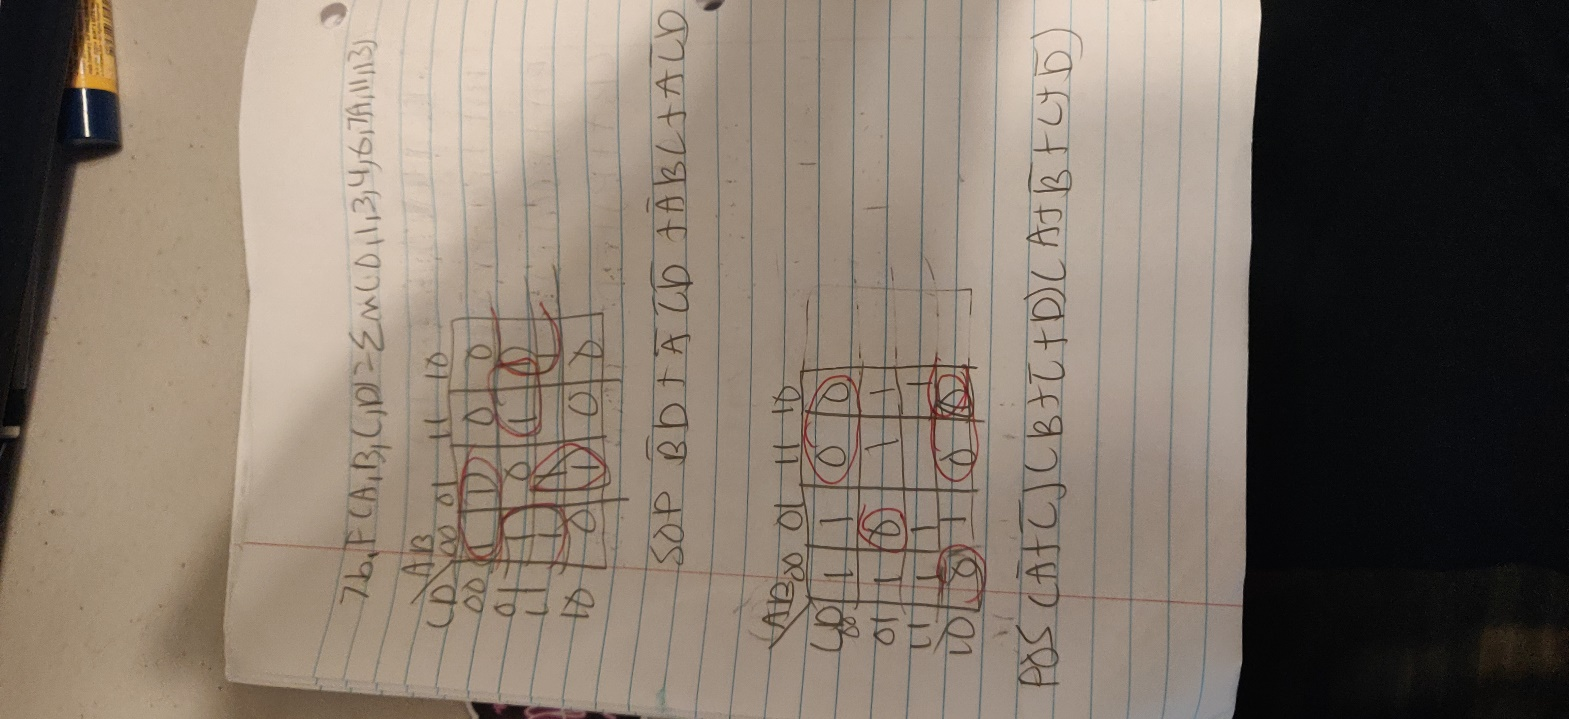 7b, F(A,B,C,D)=Σm(0,1,3,4,6,7,9,11,13)
AB
CD 00 01 11 10
00 1 1 0 0
01 1 0 1 1
11 1 1 1
10 0 1 0 0
SOP B̅D + A̅C̅D̅ + A̅BC + AC̅D
AB
CD 00 01 11 10
00 1 1 0 0
01 1 0 1 1
11 1 1 1
10 0 1 0 0
POS (A+C̅)(B+C̅+D)(A+B̅+C+D̅)